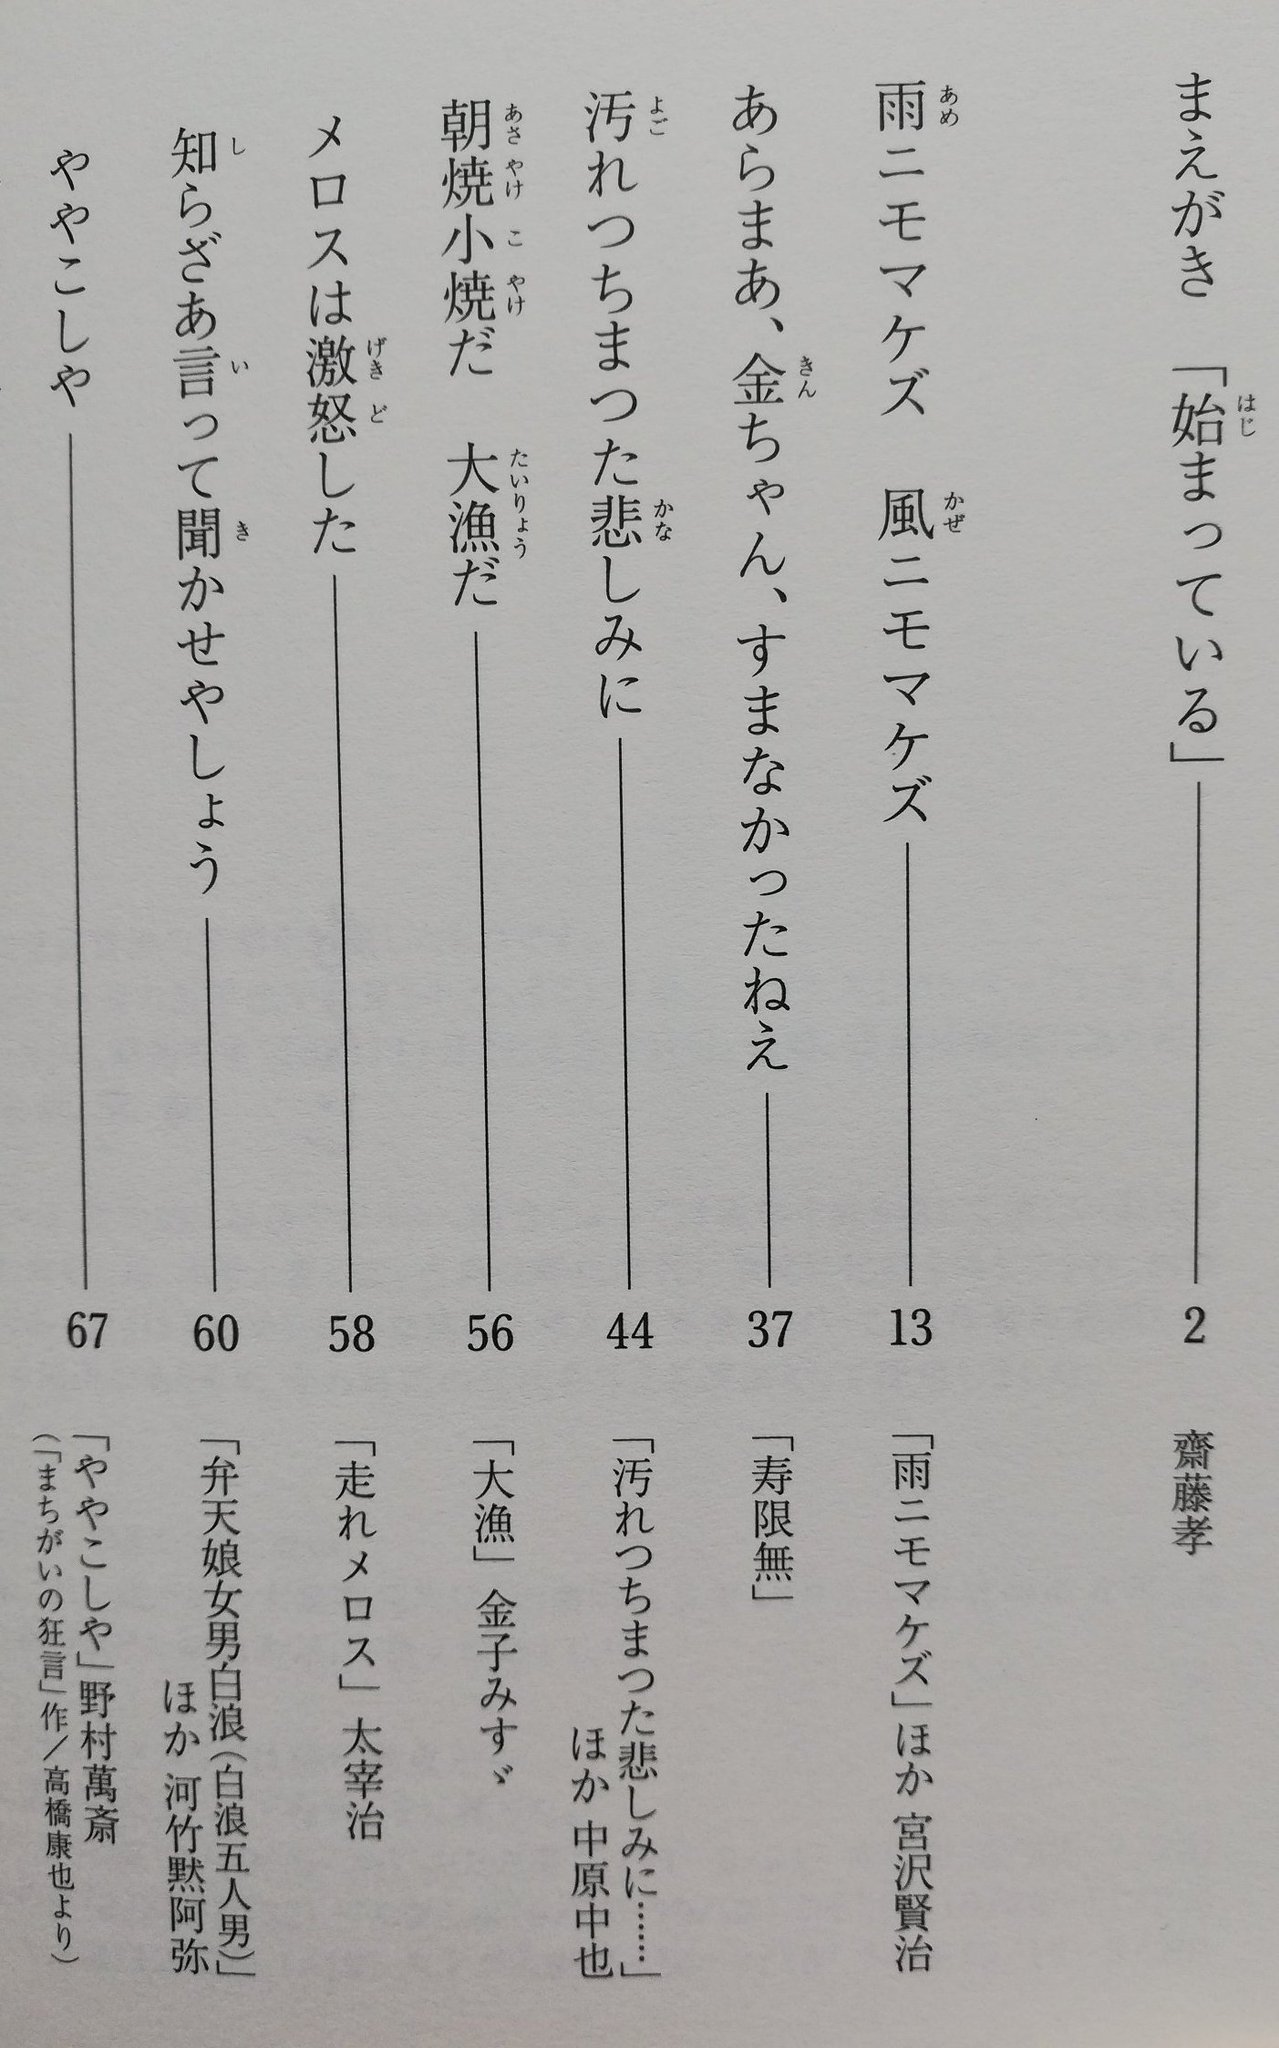 まえがき 「始まっている」 2 齋藤孝
雨ニモマケズ 風ニモマケズ 13 「雨ニモマケズ」ほか 宮沢賢治
あらまあ、金ちゃん、すまなかったねえ 37 「寿限無」
汚れつちまつた悲しみに 44 「汚れつちまつた悲しみに……」
ほか 中原中也
朝焼小焼だ 大漁だ 56 「大漁」金子みすゞ
メロスは激怒した 58 「走れメロス」太宰治
知らざあ言って聞かせやしょう 60 「弁天娘女男白浪（白浪五人男）」
ほか 河竹黙阿弥
ややこしや 67 「ややこしや」野村萬斎
（「まちがいの狂言」作／高橋康也より）